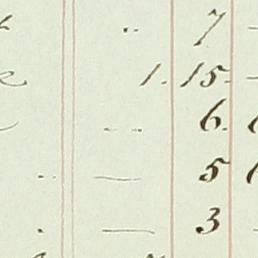 " 7 –
1. 15 –
" " 6.
" — 5
" — 3